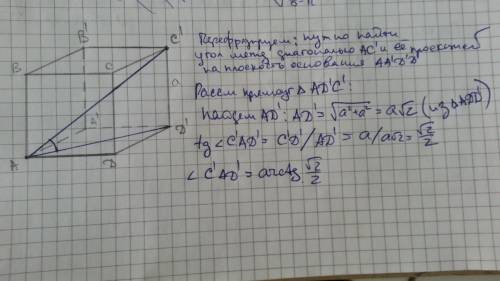 √8-π
Перефразируем: нужно найти
угол между диагональю AC' и её проекцией
на плоскость основания AA'D'D
Рассм прямоуг △ AD'C':
Найдем AD': AD' = √a²+a² = a√2 (из △ADD')
tg ∠C'AD' = C'D'/AD' = a/a√2 = √2/2
∠C'AD' = arctg √2/2
B'
C'
B
C
a
A'
D'
A
D